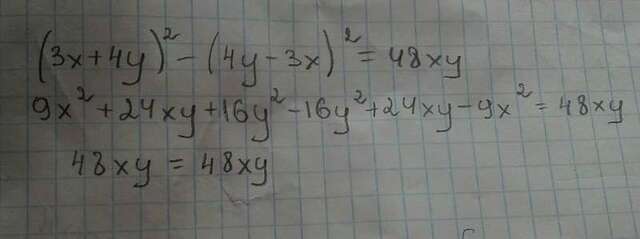 (3x+4y)² - (4y-3x)² = 48xy
9x² + 24xy + 16y² - 16y² + 24xy - 9x² = 48xy
48xy = 48xy